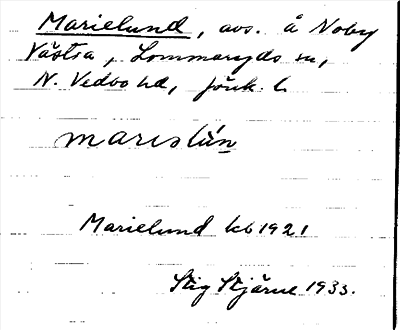 Marielund, avs. å Noby
Västra, Lommaryds sn,
N. Vedbo hd, Jönk. l.
marɩslún
Marielund kb 1921
Stig Stjärne 1933.